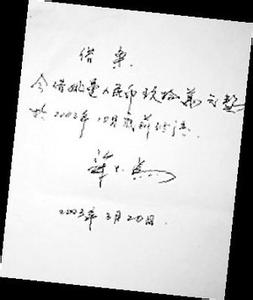 借条
今借姚曼人民币玖拾万元整
於2003年10月底前付清.
2003年3月20日.